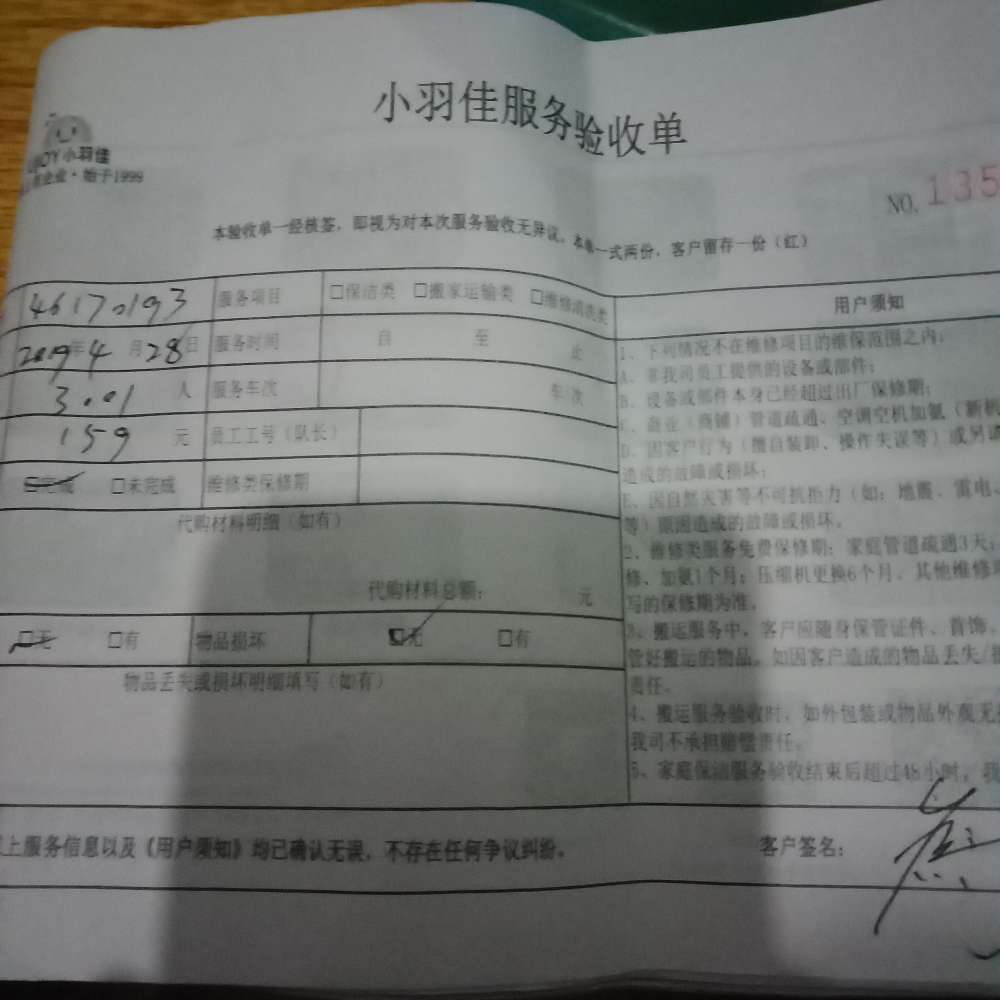 小羽佳服务验收单
小羽佳
企业·始于1999
NO. 135
本验收单一经核签，即视为对本次服务验收无异议。本单一式两份，客户留存一份（红）
46170193 服务项目 □保洁类 □搬家运输类 □维修清洗类 用户须知
2019年4月28日 服务时间 自 至 止
人 服务车次 车/次
159 元 员工工号（队长）
□完成 □未完成 维修类保修期
代购材料明细（如有）
代购材料总额： 元
□无 □有 物品损坏 □无 □有
物品丢失或损坏明细填写（如有）
1、下列情况不在维修项目的维保范围之内：
A、非我司员工提供的设备或部件；
B、设备或部件本身已经超过出厂保修期；
C、商业（商铺）管道疏通、空调空机加氨（新机
D、因客户行为（擅自装卸、操作失误等）或另
造成的故障或损坏；
E、因自然灾害等不可抗拒力（如：地震、雷电、
等）原因造成的故障或损坏。
2、维修类服务免费保修期：家庭管道疏通3天；
修、加氨1个月；压缩机更换6个月。其他维修
写的保修期为准。
3、搬运服务中，客户应随身保管证件、首饰、
管好搬运的物品。如因客户造成的物品丢失/
责任。
4、搬运服务验收时，如外包装或物品外观无
我司不承担赔偿责任。
5、家庭保洁服务验收结束后超过48小时，我
上服务信息以及《用户须知》均已确认无误，不存在任何争议纠纷。 客户签名：